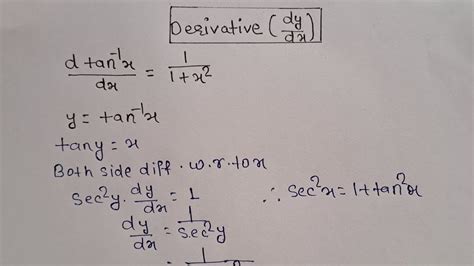 Derivative (dy/dx)
d tan⁻¹x/dx = 1/1+x²
y = tan⁻¹x
tany = x
Both side diff. w.r.to x
sec²y. dy/dx = 1 ∴ sec²x = 1+tan²x
dy/dx = 1/sec²y
= 1